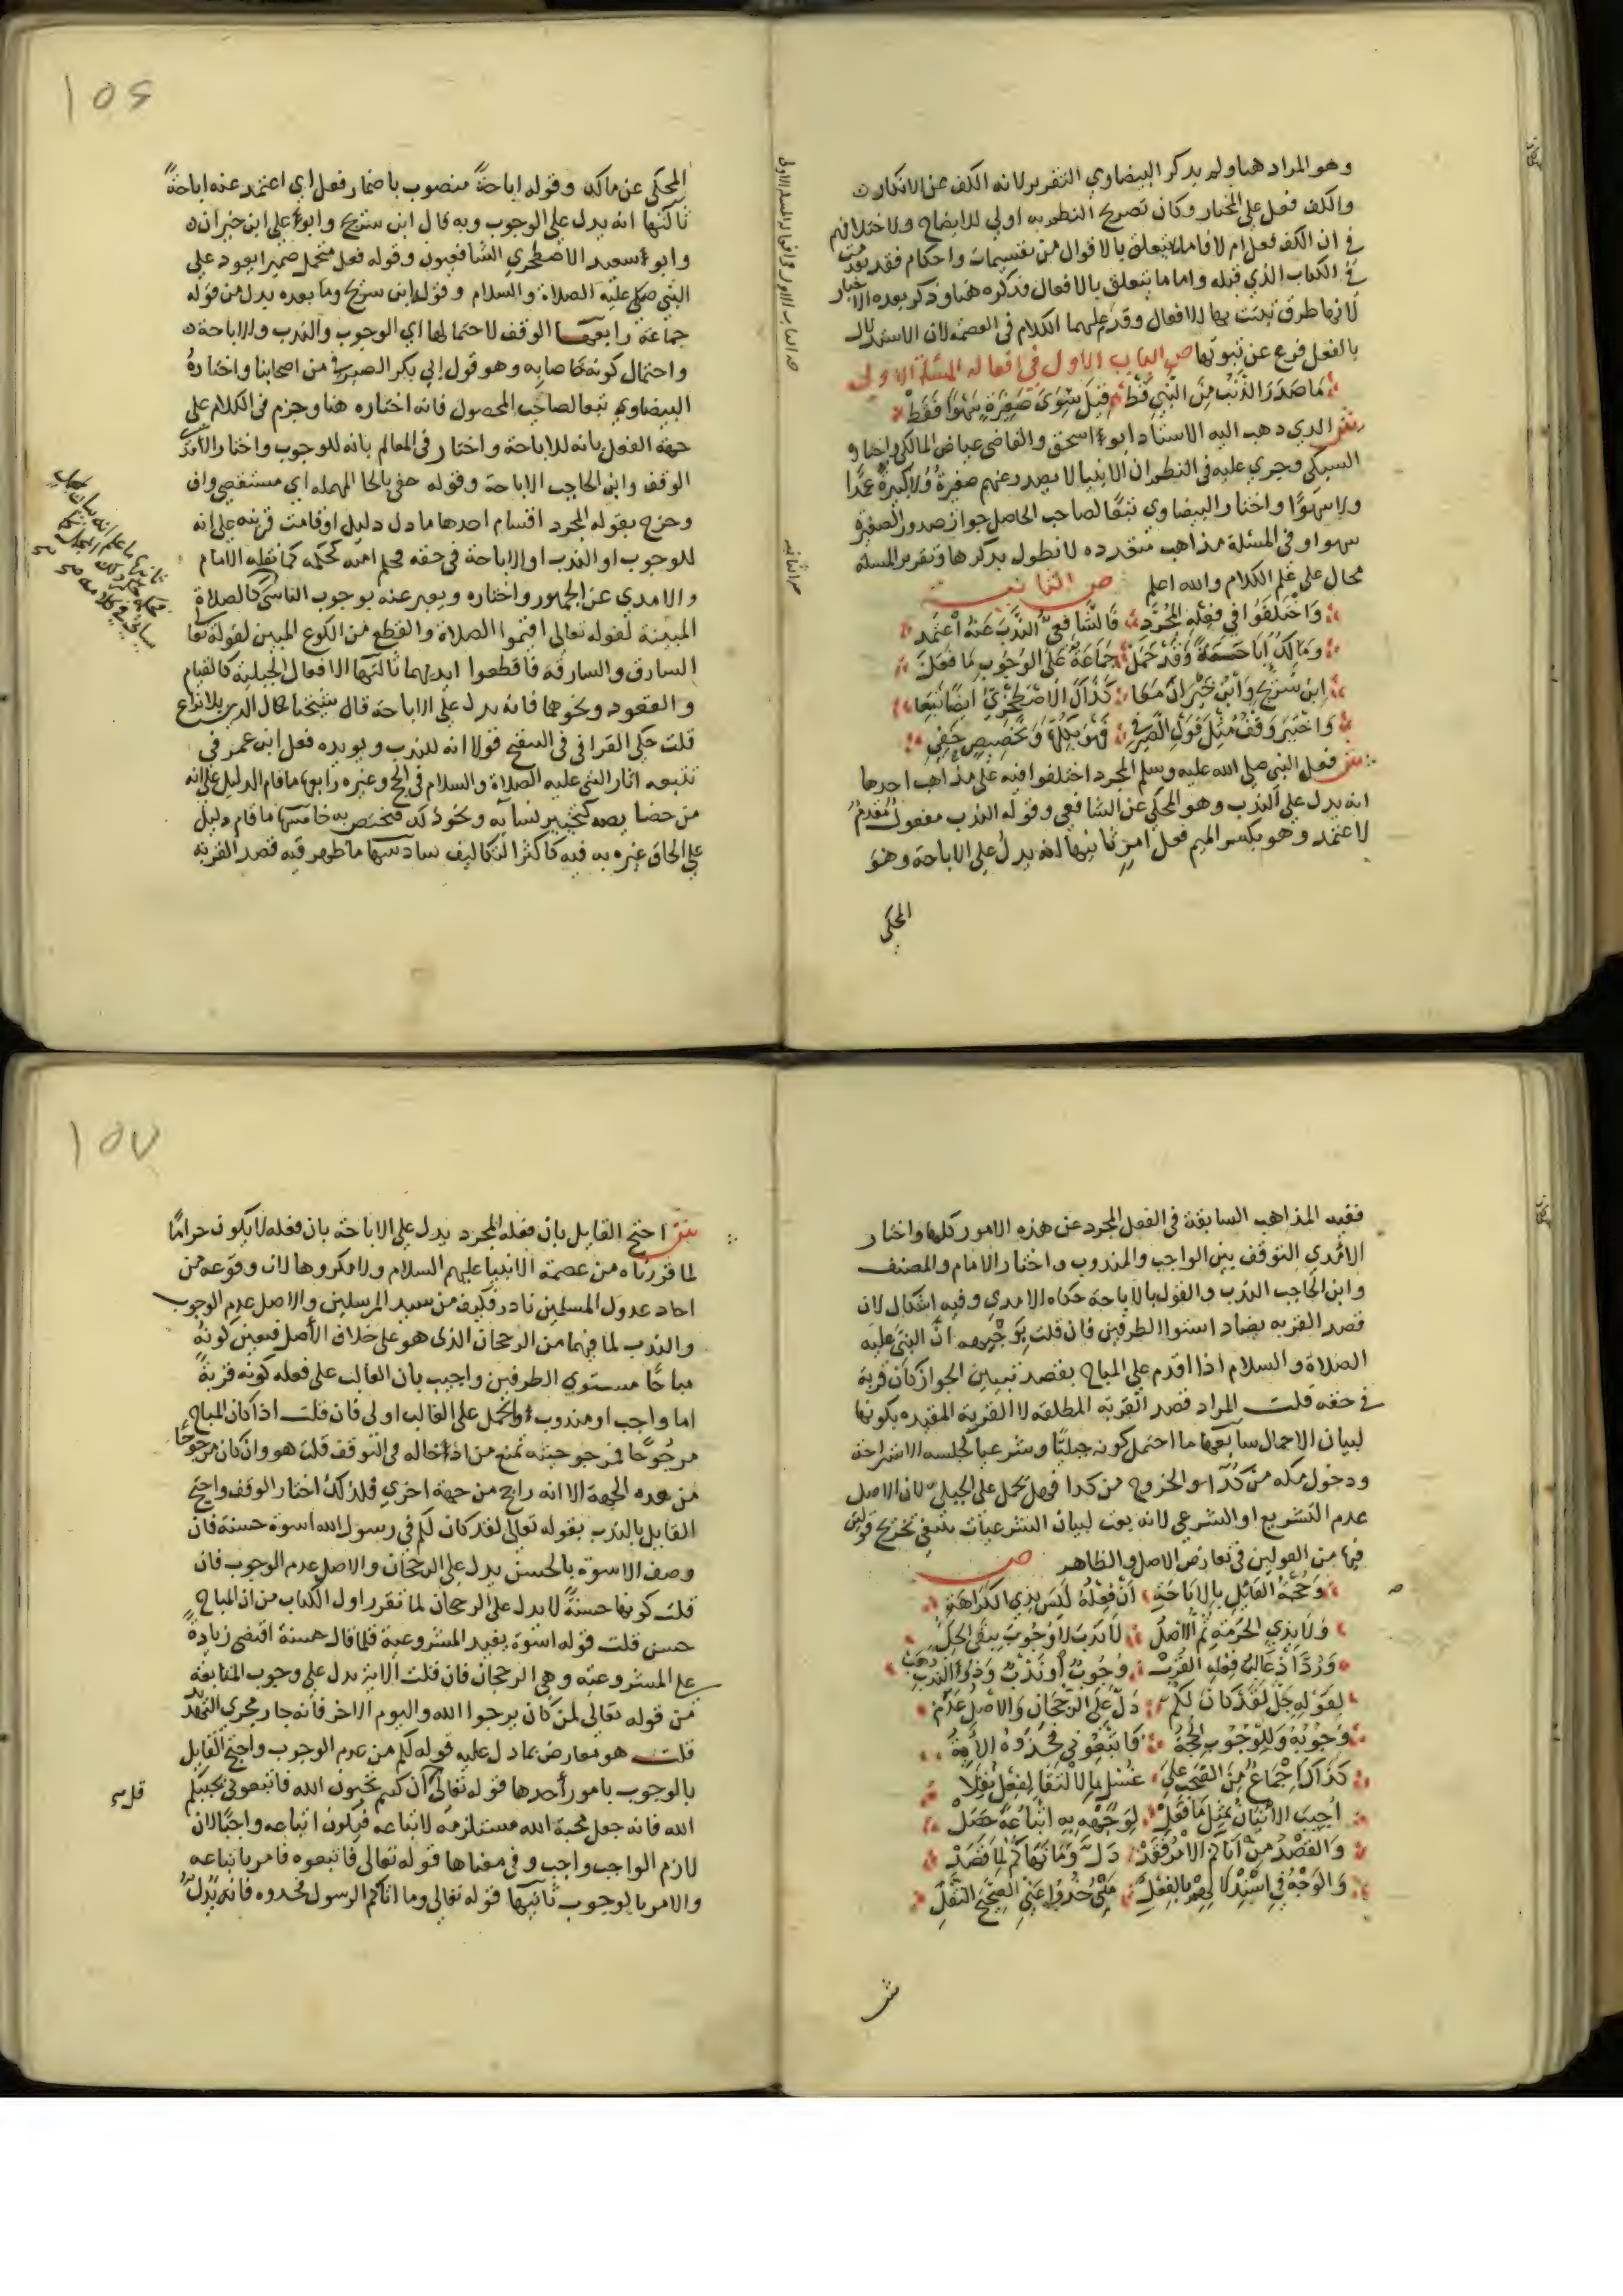 وهو المراد هنا ولم يذكر البيضاوي التقرير لانه الكف عن الانكار
والكف فعل على المختار وكان تصريح النظم به اولى للايضاح ولاختلافهم
في ان الكف فعل ام لا فاما ما يتعلق بالاقوال من تقسيمات واحكام فقد
في الكتاب الذي قبله واما ما يتعلق بالافعال فذكره هنا وذكر بعده الاخبار
لانها طرق تثبت بها الافعال وقدم عليهما الكلام في العصمة لان الاستدلال
بالفعل فرع عن ثبوتها ص الباب الاول في افعاله المسئلة الاولى
مَا صَدَرَ الذَّنْبُ مِنَ النَّبِي قَطْ قِيلَ سِوَى صَغِيرَةٍ سَهْوًا فَقَطْ
ش الذي ذهب اليه الاستاد ابو اسحق والقاضي عياض المالكي واختاره
السبكي وجري عليه في النظم ان الانبيا لا يصدر عنهم صغيرة ولا كبيرة عمدا
ولا سهوًا واختار البيضاوي تبعًا لصاحب الحاصل جواز صدور الصغيرة
سهوا وفي المسئلة مذاهب متعدده لا نطول بذكرها وتقرير المسله
محال على علم الكلام والله اعلم ص الثانية
وَاخْتَلَفُوا فِي فِعْلِهِ الْمُجَرَّدِ فَالشَّافِعِيُّ النَّدْبَ عَنْهُ اعْتَمِدِ
وَمَالِكٌ إبَاحَةً وَقَدْ حَمَلْ جَمَاعَةٌ عَلَى الوُجُوبِ مَا فَعَلَ
ابْنُ سُرَيْجٍ وَابْنُ خَيْرَانَ مَعَا كَذَلِكَ الاصْطَخْرِيُّ ايضًا تَبِعَا
وَاخْتِيرَ وَقْفٌ مِثْلَ قَوْلِ الصَّيْرَفِي
ش فعل النبي صلى الله عليه وسلم المجرد اختلفوا فيه على مذاهب احدها
انه يدل على الندب وهو المحكي عن الشافعي وقوله الندب مفعول مقدم
لاعتمد وهو بكسر الميم فعل امر ثانيها انه يدل على الاباحة وهو
المحكي
١٥٦
المحكي عن مالك وقوله اباحةً منصوب باضمار فعل اي اعتمد عنه اباحةً
ثالثها انه يدل على الوجوب وبه قال ابن سريج وابو علي ابن خيران
وابو سعيد الاصطخري الشافعيون وقوله فعل متحمل ضميرا يعود على
النبي صلى عليه الصلاة والسلام وقوله ابن سريج وما بعده بدل من قوله
جماعة رابعها الوقف لاحتمالها اي الوجوب والندب والاباحة
واحتمال كونه خاصا به وهو قول ابي بكر الصيرفي من اصحابنا واختاره
البيضاوي تبعا لصاحب المحصول فانه اختاره هنا وجزم في الكلام على
جهة الفعل بانه للاباحة واختار في المعالم بانه للوجوب واختار الآمدي
الوقف وابن الحاجب الاباحة وقوله حفي بالحا المهمله اي مستقصي واف
وخرج بقوله المجرد اقسام احدها ما دل دليل او قامت قرينه على انه
للوجوب او الندب او الاباحة في حقه فحكم امته كحكمه كما نقله الامام
والامدي عن الجمهور واختاره ويعبر عنه بوجوب التاسي كالصلاة
المبينة لقوله تعالى اقيموا الصلاة والقطع من الكوع المبين لقوله تعا
السارق والسارقة فاقطعوا ايديهما ثالثها الافعال الجبلية كالقيام
والقعود ونحوهما فانه يدل على الاباحة قال شيخنا كمال الدين بلا نزاع
قلت حكي القرافي في التنقيح قولا انه للندب ويويده فعل ابن عمر في
تتبعه اثار النبي عليه الصلاة والسلام في الحج وغيره رابعها ما قام الدليل على انه
من خصايصه كتخيير نسايه ونحو ذلك فيختص به خامسها ما قام دليل
على الحاق غيره به فيه كاكثر التكاليف سادسها ما ظهر فيه قصد القربه
ففيه المذاهب السابقة في الفعل المجرد عن هذه الامور كلها واختار
الامدي التوقف بين الواجب والمندوب واختار الامام والمصنف
وابن الحاجب الندب والقول بالاباحة حكاه الامدي وفيه اشكال لان
قصد القربه يضاد استوا الطرفين فان قلت يوجهه ان النبي عليه
الصلاة والسلام اذا اقدم على المباح بقصد تبيين الجواز كان قربة
في حقه قلت المراد قصد القربة المطلقه لا القربة المقيده بكونها
لبيان الاجمال سابعها ما احتمل كونه جبليًا وشرعيا كجلسه الاستراحة
ودخول مكه من كداء والخروج من كدا فهل يحمل على الجبلي لان الاصل
عدم التشريع او الشرعي لانه بعث لبيان الشرعيات ينبغي تخريج قولين
فيها من القولين في تعارض الاصل والظاهر ص
وَحُجَّةُ القَائِلِ بِالاِبَاحَةِ أَنْ فِعْلُهُ لَيْسَ بِذِي الكَرَاهَةِ
وَلَا بِذِي الحُرْمَةِ ثُمَّ الأَصْلُ لَا نَدْبَ لَا وُجُوبَ يَبْقَى الحِلُّ
وَرُدَّ اذْ غَالِبُ فِعْلِهِ القُرَبْ وُجُوبٌ اَوْ نَدْبٌ وَذُو النَّدْبِ ذَهَبْ
لِقَوْلِهِ جَلَّ لَقَدْ كَانَ لَكُمْ دَلَّ عَلَى الرُّجْحَانِ وَالاصْلُ عَدَمْ
وُجُوبُهُ وَلِلْوُجُوبِ الحُجَّةُ فَاتَّبِعُونِي فَخُذُوهُ الآيَةُ
كَذَاكَ اجْمَاعٌ مِنَ الصَّحْبِ عَلَى غُسْلٍ بِالِالْتِقَا لِفِعْلٍ نُقِلَا
اُجِيبَ الاِتْيَانُ بِمِثْلِ مَا فَعَلْ لِوَجْهِهِ بِهِ اتِّبَاعُهُ حَصَلْ
وَالقَصْدُ مِنْ آتَاكُمُ الاَمْرُ فَقَدْ دَلَّ وَمَا نَهَاكُمْ لِمَا قَصَدْ
وَالوَجْهُ فِي اسْتِدْلَالِهِمْ بِالفِعْلِ خُذُوا عَنِّي الصَّحِيحِ النَّقْلِ
ش
١٥٧
ش احتج القايل بان فعله المجرد يدل على الاباحة بان فعله لا يكون حرامًا
لما قررناه من عصمة الانبيا عليهم السلام ولا مكروها لان وقوعه من
احاد عدول المسلمين نادر فكيف من سيد المرسلين والاصل عدم الوجوب
والندب لما فيهما من الرجحان الذي هو على خلاف الأصل فتعين كونه
مباحًا مستوي الطرفين واجيب بان الغالب على فعله كونه قربةً
اما واجب او مندوب والحمل على الغالب اولى فان قلت اذا كان المباح
مرجوحًا فمرجوحيته تمنع من ادخاله في التوقف قلت هو وان كان مرجوحًا
من هده الجهة الا انه راجح من جهة اخري فلذلك اختار الوقف واحتج
القايل بالندب بقوله تعالى لقد كان لكم في رسول الله اسوة حسنة فان
وصف الاسوة بالحسن يدل على الرجحان والاصل عدم الوجوب فان
قلت كونها حسنةً لا يدل على الرجحان لما تقرر اول الكتاب من ان المباح
حسن قلت قوله اسوة يفيد المشروعية فلما قال حسنة اقتضى زيادةً
على المشروعية وهي الرجحان فان قلت الاية تدل على وجوب المتابعة
من قوله تعالى لمن كان يرجوا الله واليوم الاخر فانه جار مجري التهديد
قلت هو معارض بما دل عليه قوله لكم من عدم الوجوب واحتج القايل
بالوجوب بامور أحدها قوله تعالى ان كنتم تحبون الله فاتبعوني يحببكم
قل
الله فانه جعل محبة الله مستلزمة لاتباعه فيكون اتباعه واجبًا لان
لازم الواجب واجب وفي معناها قوله تعالى فاتبعوه فامر باتباعه
والامر بالوجوب ثانيها قوله تعالى وما اتاكم الرسول فخدوه فانه يدل